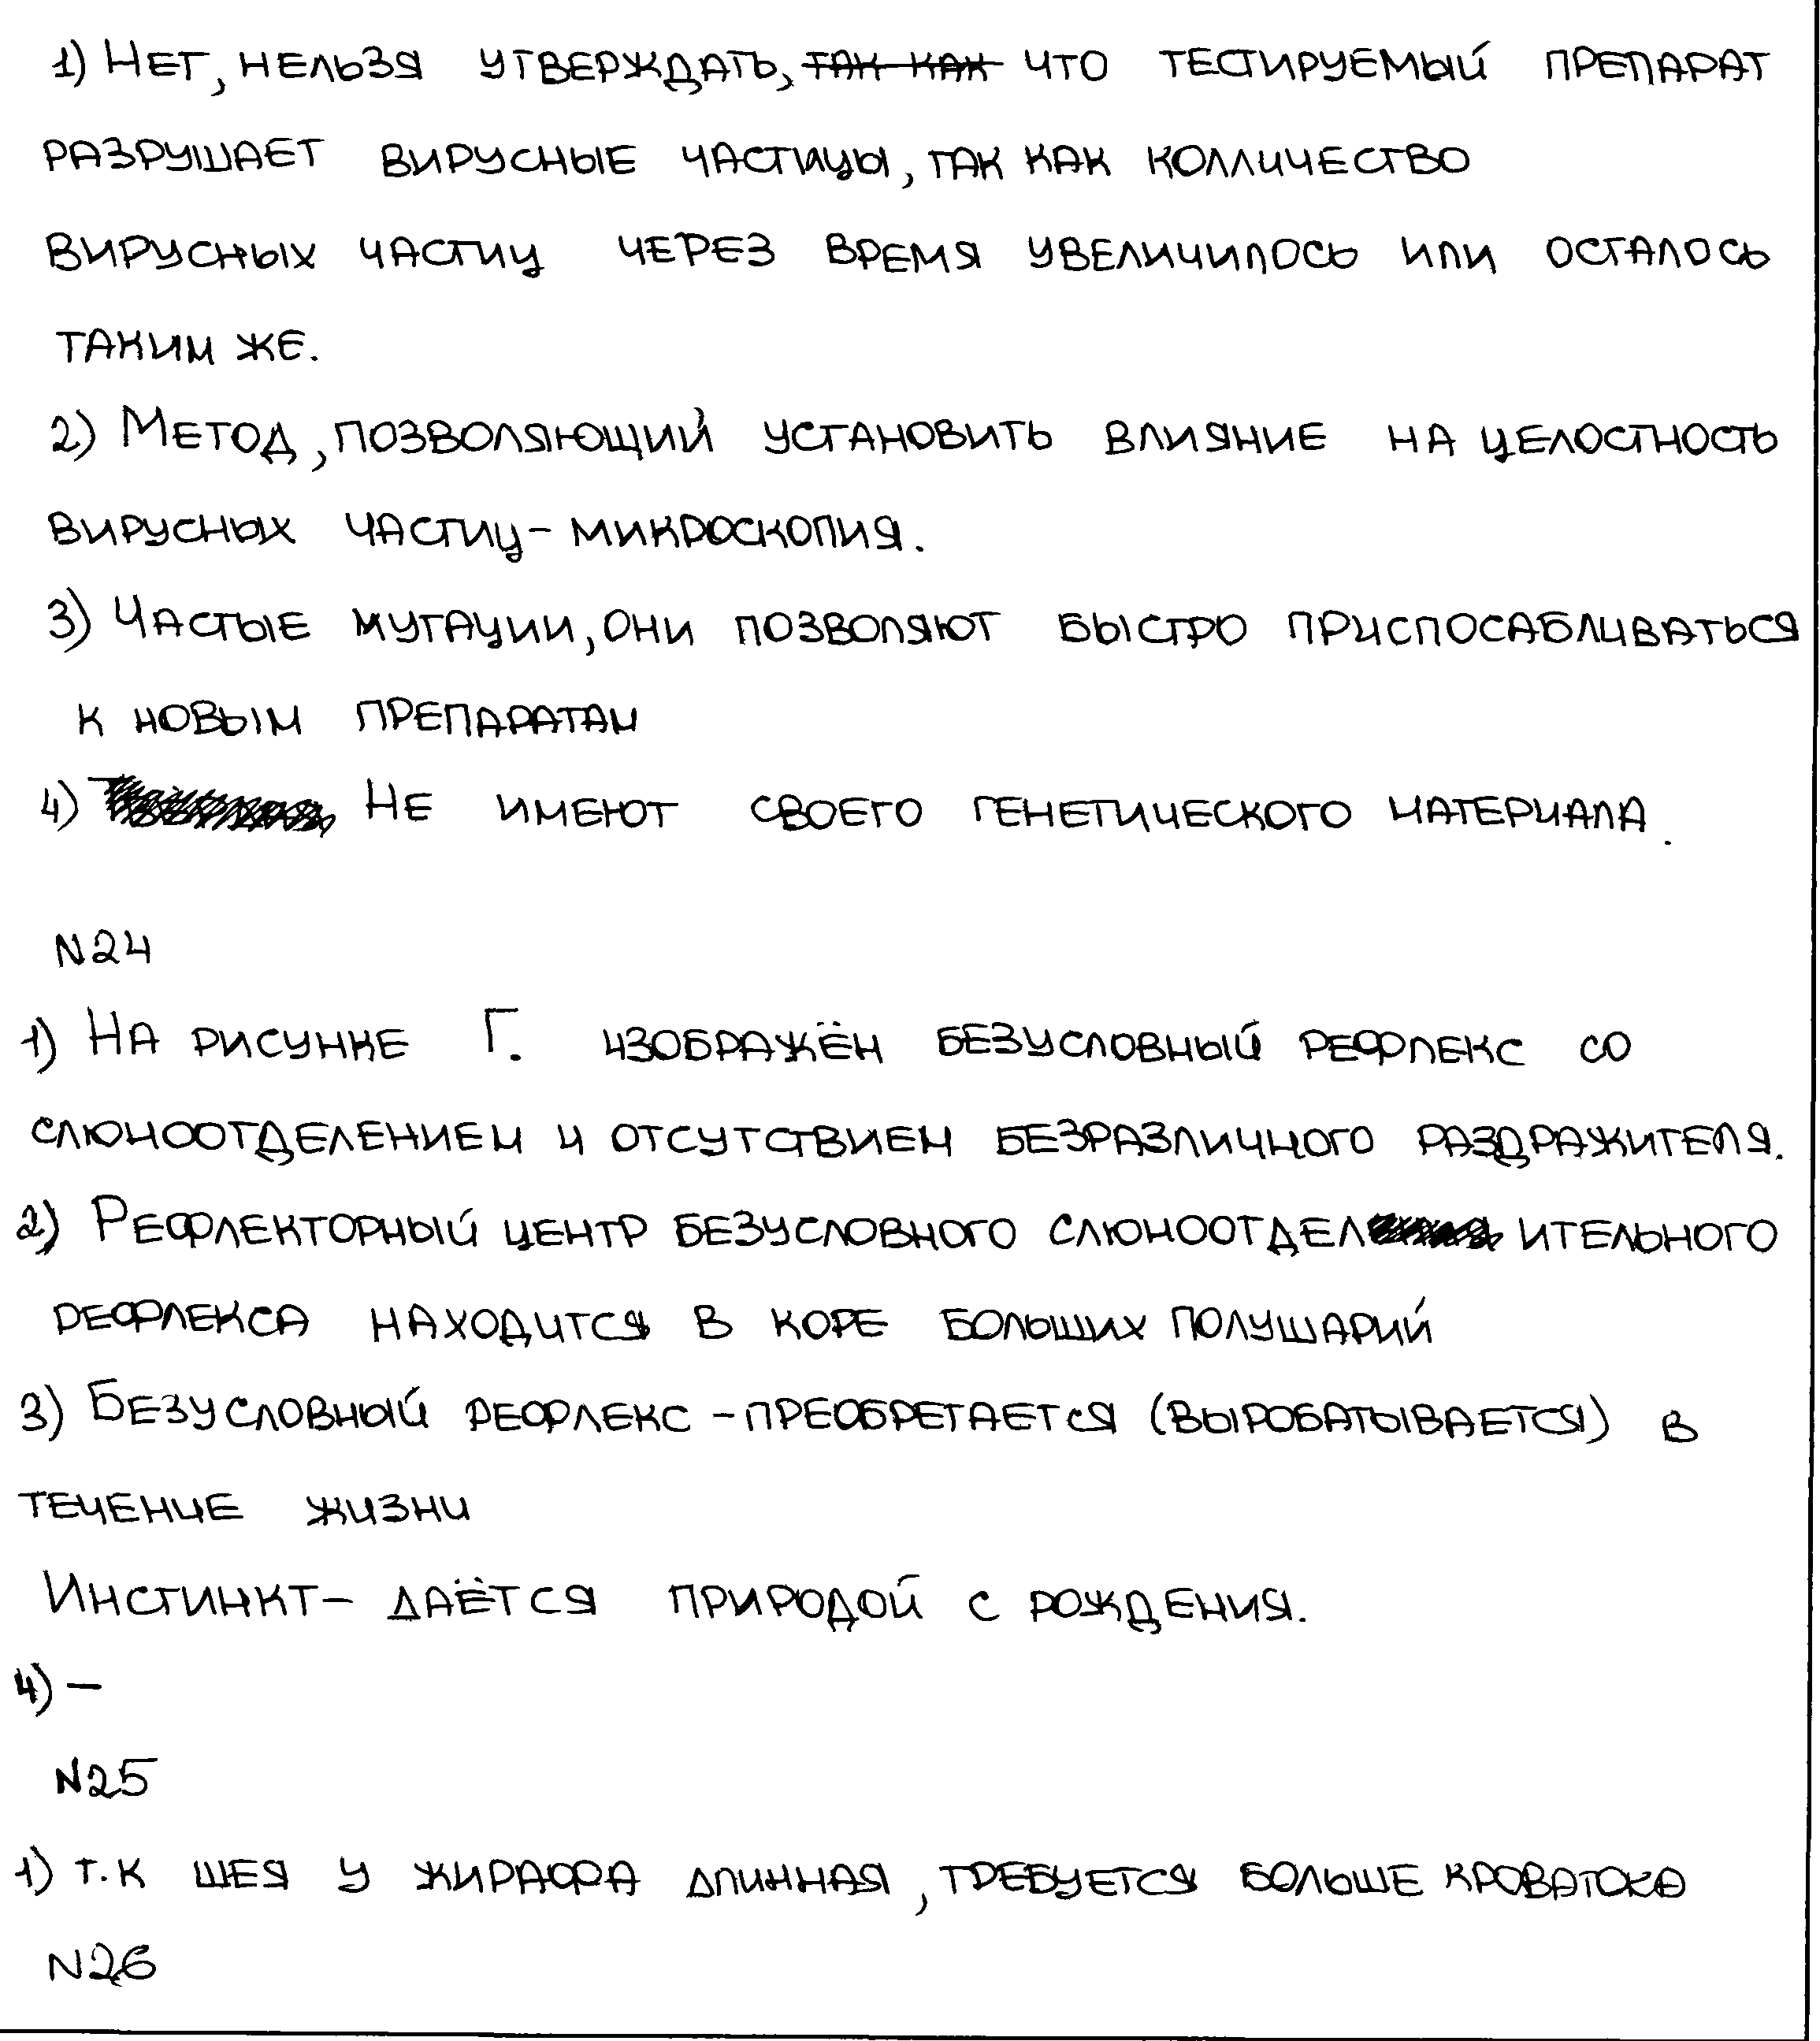 1) Нет, нельзя утверждать, так как что тестируемый препарат
разрушает вирусные частицы, так как колличество
вирусных частиц через время увеличилось или осталось
таким же.
2) Метод, позволяющий установить влияние на целостность
вирусных частиц - микроскопия.
3) Частые мутации, они позволяют быстро приспосабливаться
к новым препаратам
4) Не имеют своего генетического материала.
N24
1) На рисунке Г. изображён безусловный рефлекс со
слюноотделением и отсутствием безразличного раздражителя.
2) Рефлекторный центр безусловного слюноотделительного
рефлекса находится в коре больших полушарий
3) Безусловный рефлекс - преобретается (выробатывается) в
течение жизни
Инстинкт - даётся природой с рождения.
4) -
N25
1) т.к шея у жирафа длинная, требуется больше кроватока
N26